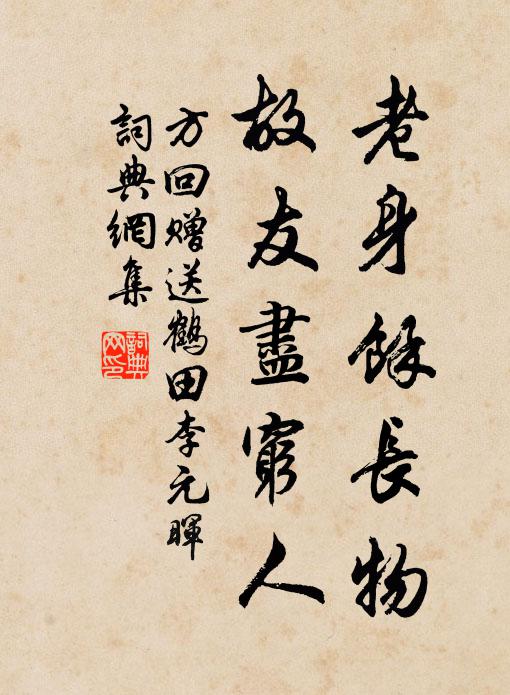 老身餘長物
故友盡窮人
方回贈送鶴田李元暉
詞典網集
詞典網印